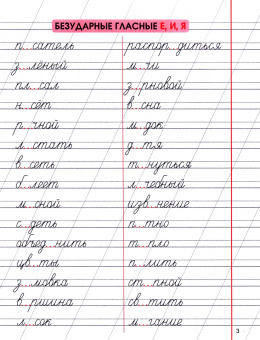 БЕЗУДАРНЫЕ ГЛАСНЫЕ Е, И, Я
п...сатель
з...лёный
пл...сал
н...сёт
р...чной
л...стать
в...сеть
б...леет
м...сной
с...деть
объед...нить
цв...ты
з...мовка
в...ршина
л...сок
распор...диться
м...чи
з...рновой
в...сна
м...док
д...тя
т...нуться
л...чебный
изв...нение
п...тно
т...пло
п...лить
ст...пной
св...тить
м...гание
3